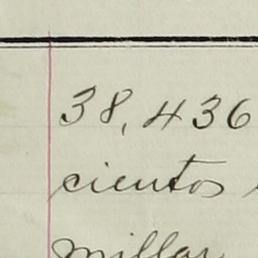 38,436
cientos
millar